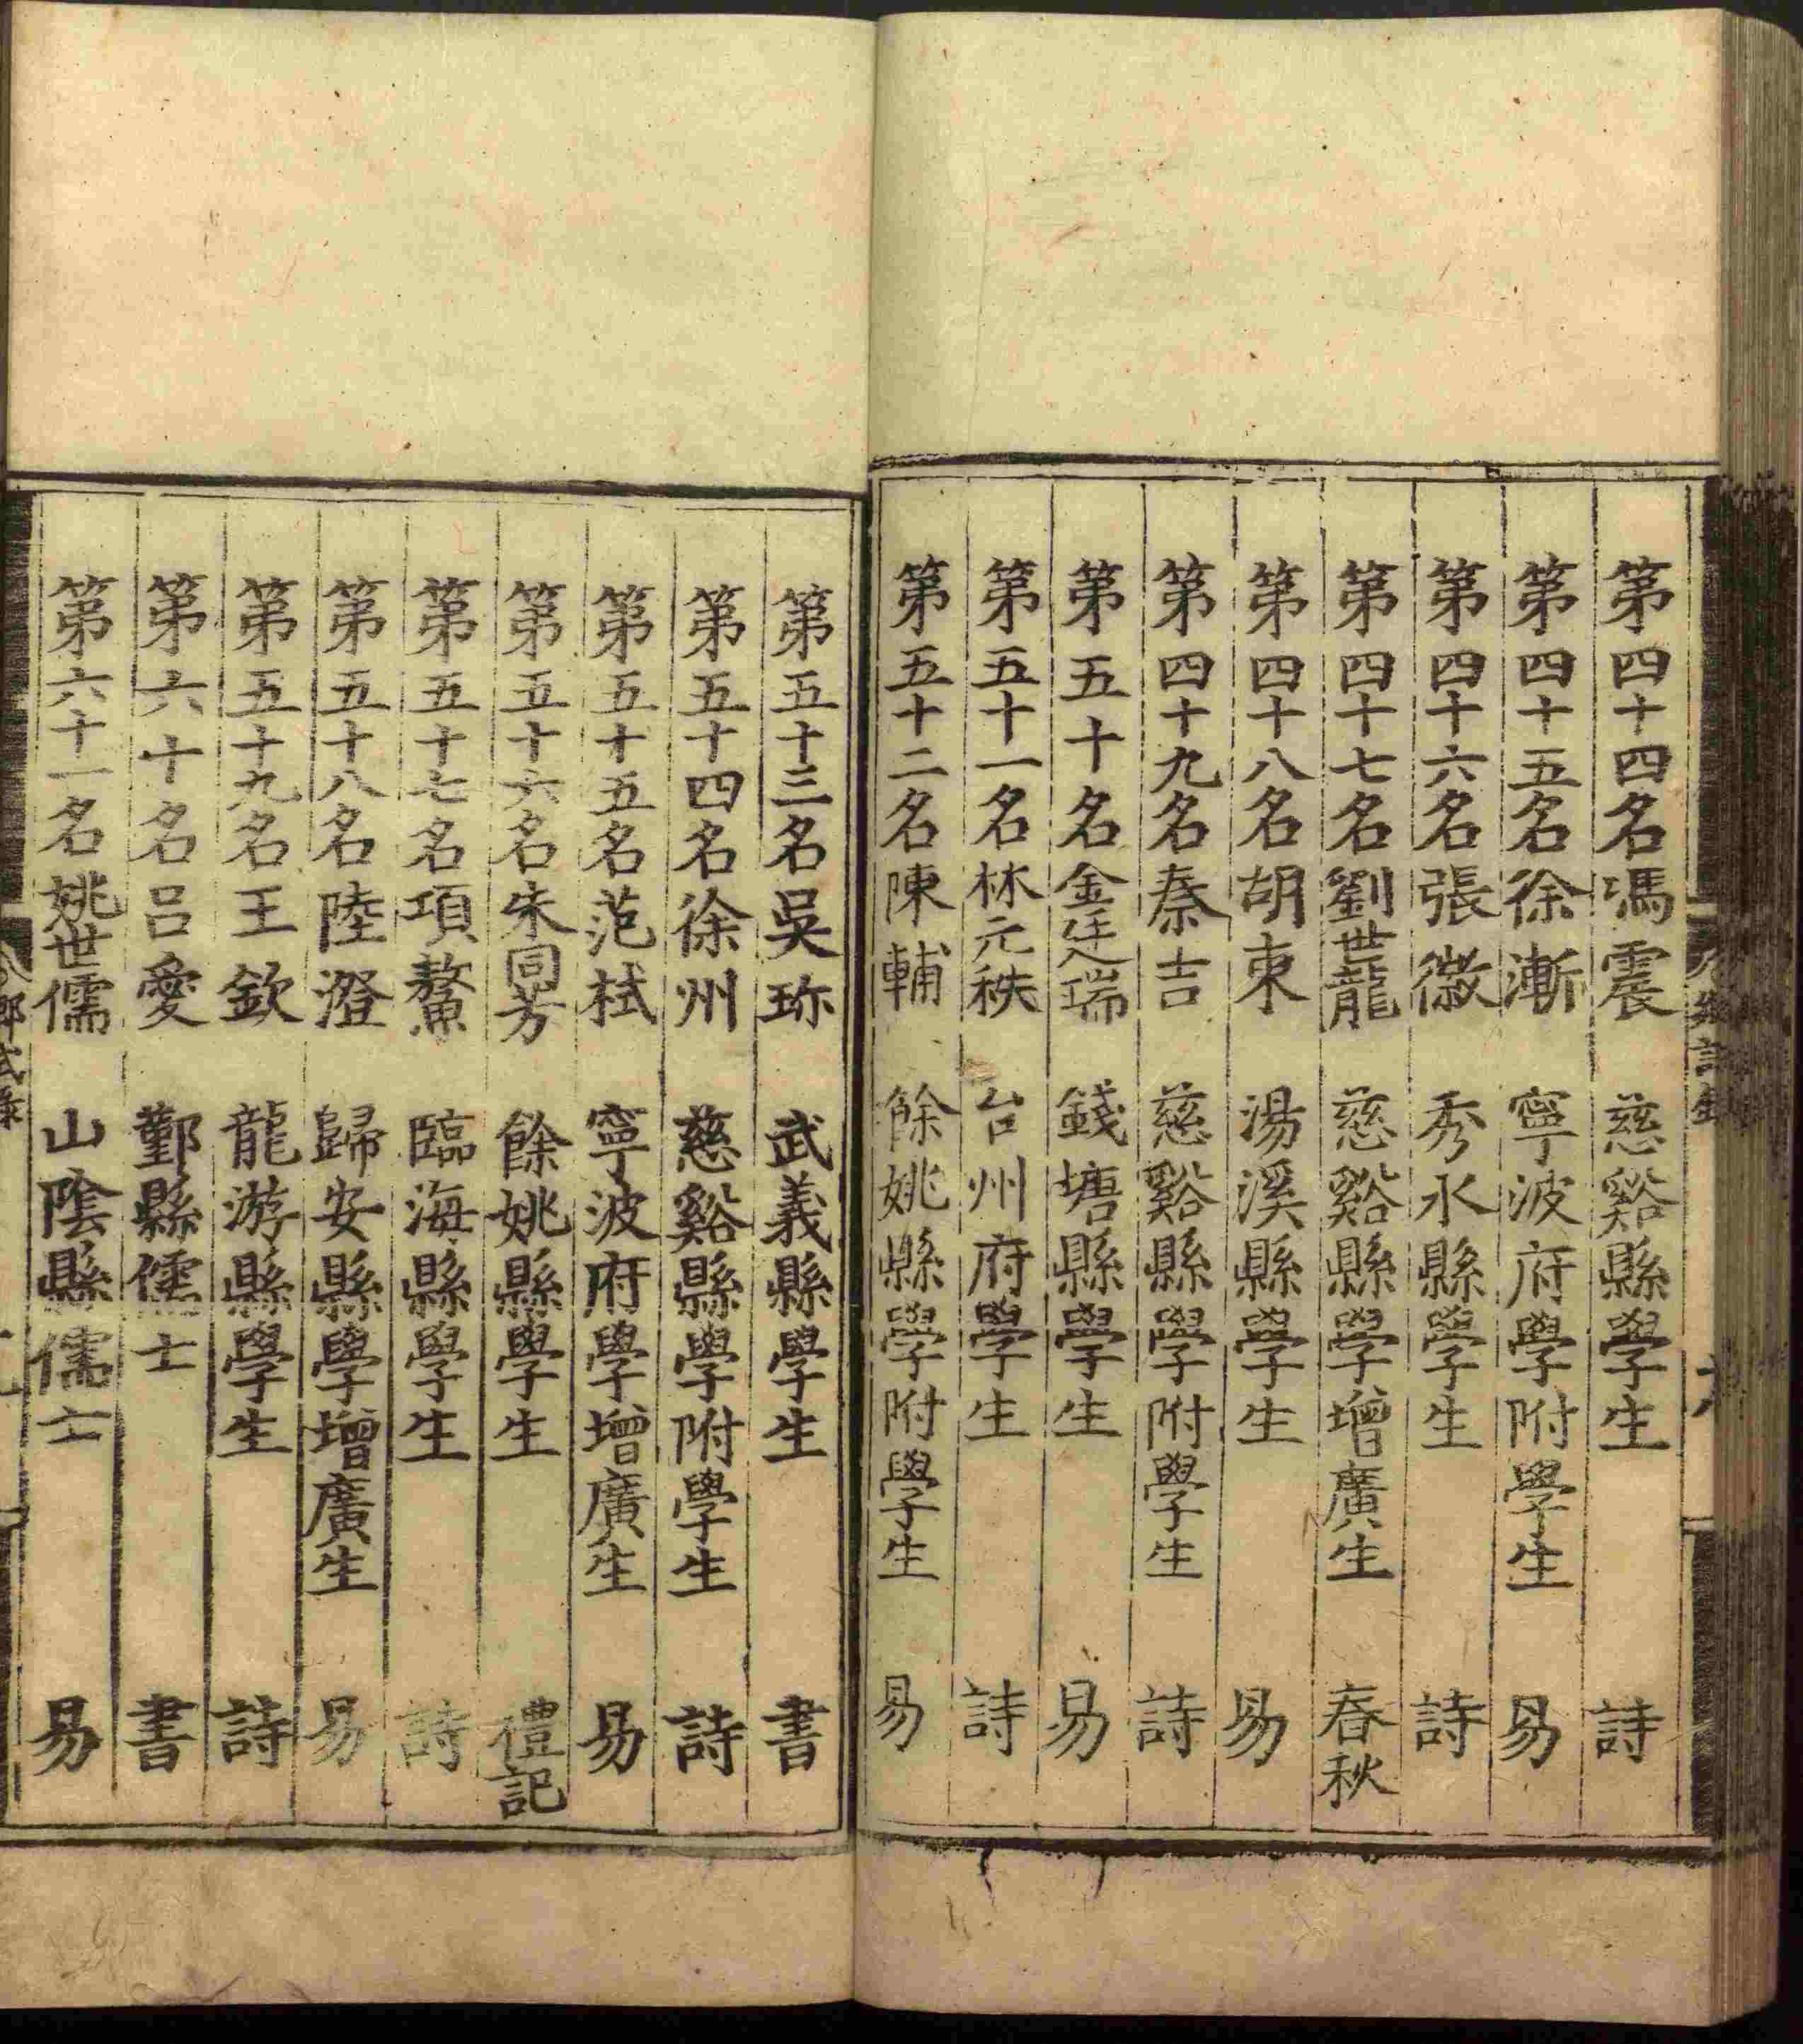 第四十四名馮震 慈谿縣學生 詩
第四十五名徐漸 寧波府學附學生 易
第四十六名張徽 秀水縣學生 詩
第四十七名劉世龍 慈谿縣學增廣生 春秋
第四十八名胡東 湯溪縣學生 易
第四十九名秦吉 慈谿縣學附學生 詩
第五十名金廷瑞 錢塘縣學生 易
第五十一名林元秩 台州府學生 詩
第五十二名陳輔 餘姚縣學附學生 易
第五十三名吳珎 武義縣學生 書
第五十四名徐州 慈谿縣學附學生 詩
第五十五名范栻 寧波府學增廣生 易
第五十六名朱同芳 餘姚縣學生 禮記
第五十七名項鰲 臨海縣學生 詩
第五十八名陸澄 歸安縣學增廣生 易
第五十九名王欽 龍游縣學生 詩
第六十名呂愛 鄞縣儒士 書
第六十一名姚世儒 山陰縣儒士 易
鄉試錄